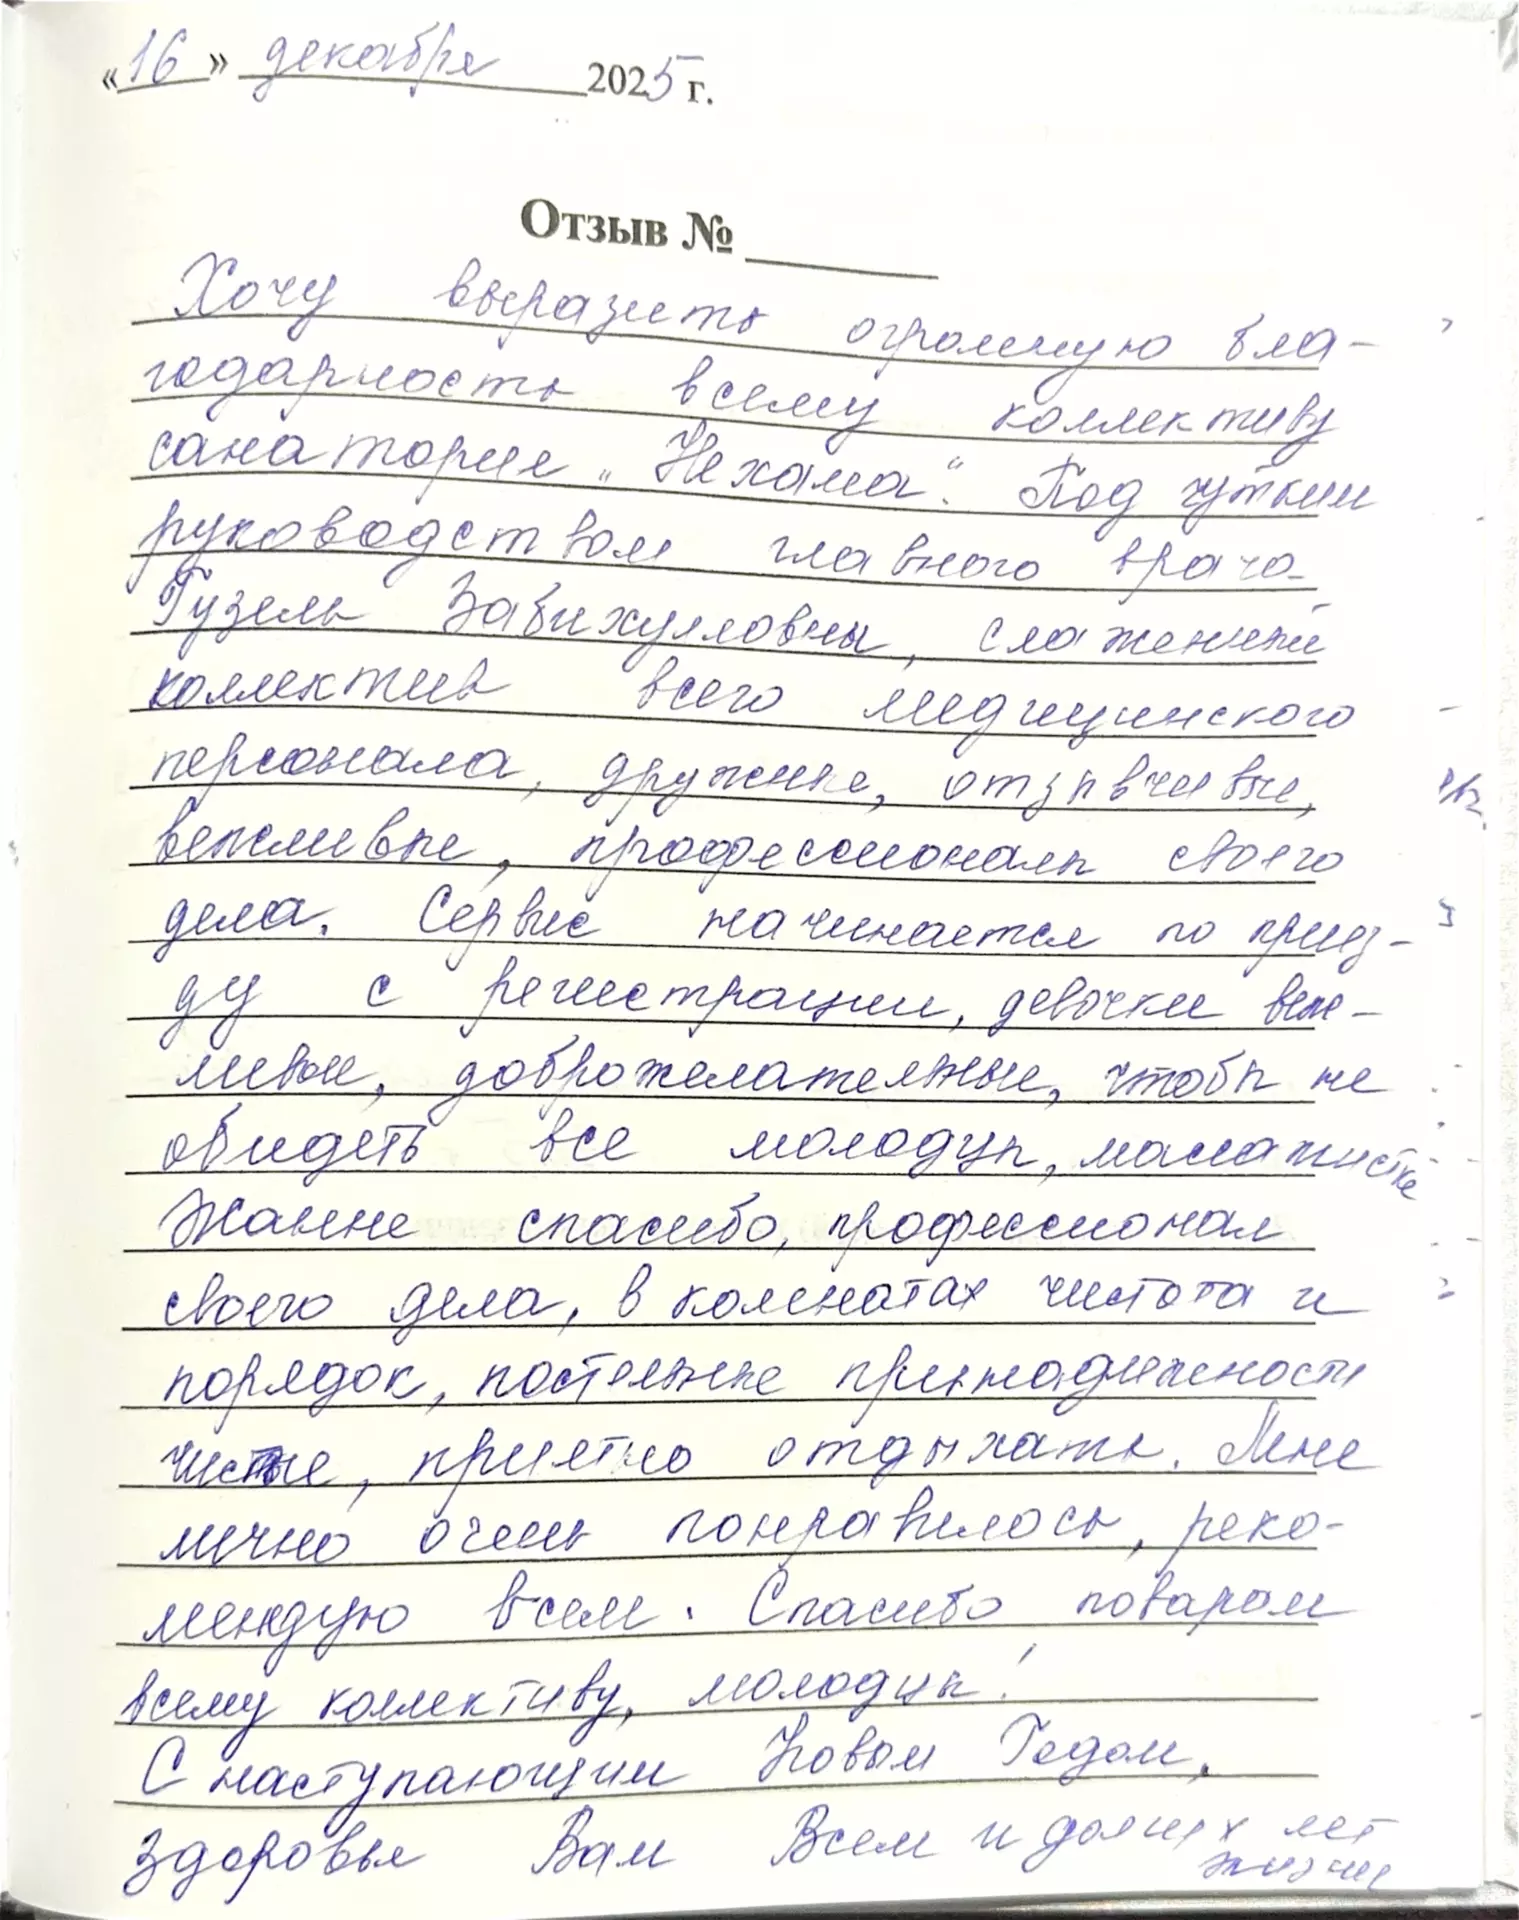 «16» декабря 2025 г.
Отзыв №
Хочу выразить огромную бла-
годарность всему коллективу
санатория „Нехама“. Под чутким
руководством главного врача
Гузель Забихулловны, слаженный
коллектив всего медицинского
персонала, дружные, отзывчивые,
вежливые, профессионалы своего
дела. Сервис начинается по приез-
ду с регистрации, девочки веж-
ливые, доброжелательные, чтобы не
обидеть все молодцы, массажистке
Жанне спасибо, профессионал
своего дела, в комнатах чистота и
порядок, постельные принадлежности
чистые, приятно отдыхать. Мне
лично очень понравилось, реко-
мендую всем. Спасибо поварам
всему коллективу, молодцы!
С наступающим Новым Годом,
здоровья Вам Всем и долгих лет
жизни